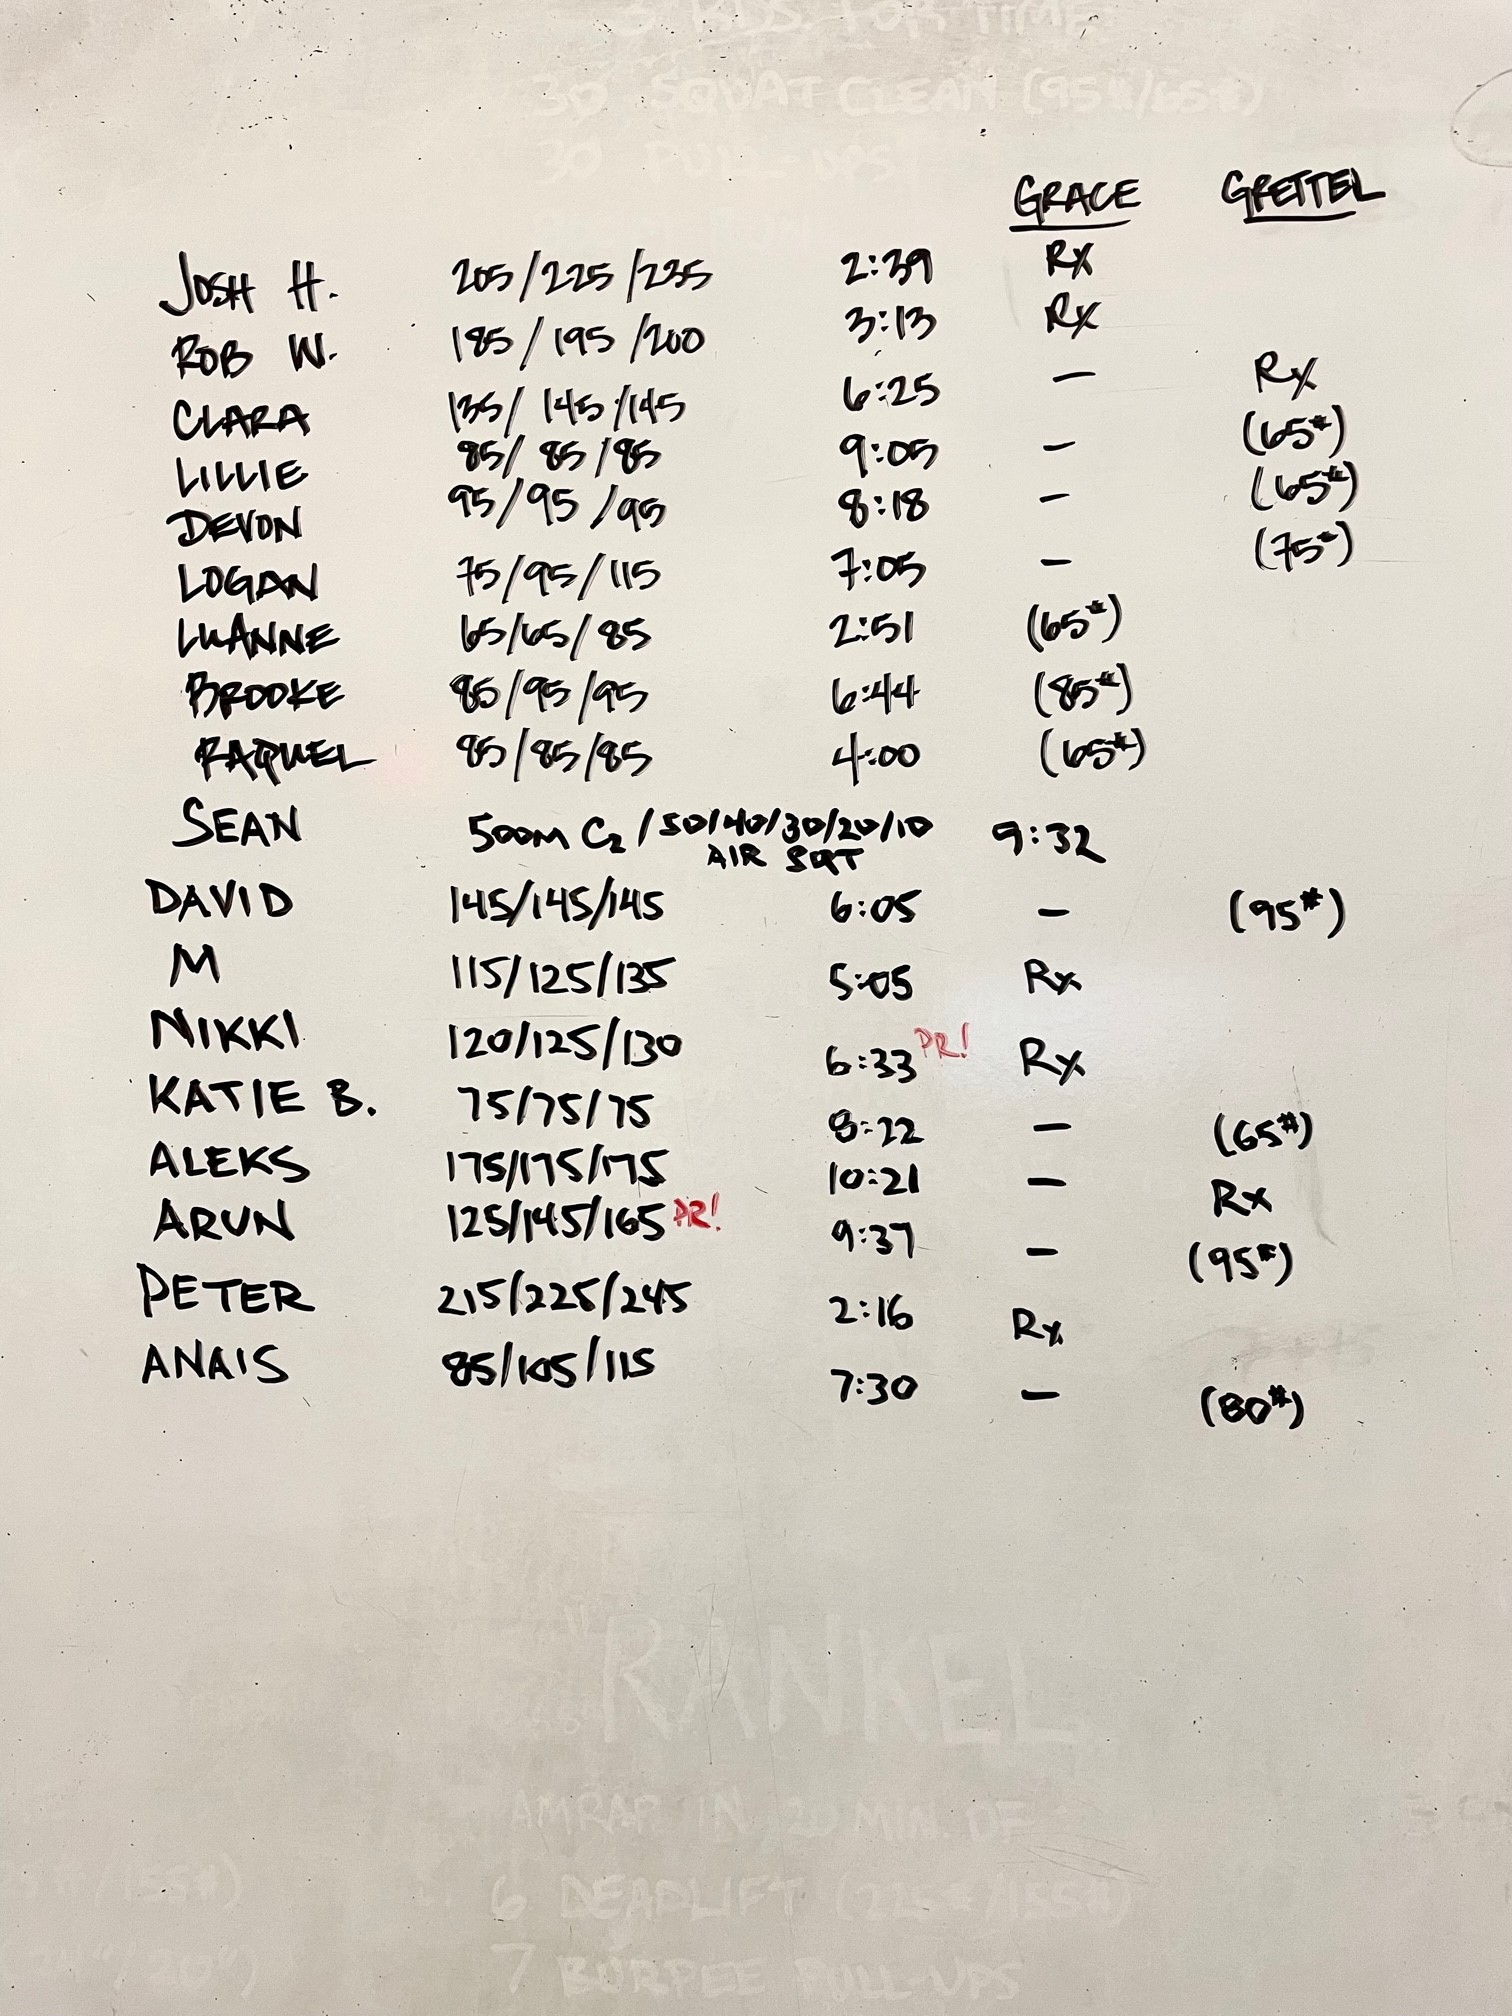 3 RDS. FOR TIME
30 SQUAT CLEAN (95#/65#)
30 PULL-UPS
GRACE GRETTEL
JOSH H. 205/225/235 2:39 Rx
ROB W. 185/195/200 3:13 Rx
CLARA 135/145/145 6:25 — Rx
LILLIE 85/85/85 9:05 — (65#)
DEVON 95/95/95 8:18 — (65#)
LOGAN 75/95/115 7:05 — (75#)
LUANNE 65/65/85 2:51 (65#)
BROOKE 85/95/95 6:44 (85#)
RAQUEL 85/85/85 4:00 (65#)
SEAN 500M C2/50/40/30/20/10 9:32
AIR SQT
DAVID 145/145/145 6:05 — (95#)
M 115/125/135 5:05 Rx
NIKKI 120/125/130 6:33 PR! Rx
KATIE B. 75/75/75 8:22 — (65#)
ALEKS 175/175/175 10:21 — Rx
ARUN 125/145/165 PR! 9:37 — (95#)
PETER 215/225/245 2:16 Rx
ANAIS 85/105/115 7:30 — (80#)
"RANKEL
AMRAP IN 20 MIN. OF
6 DEADLIFT (225#/155#)
7 BURPEE PULL-UPS